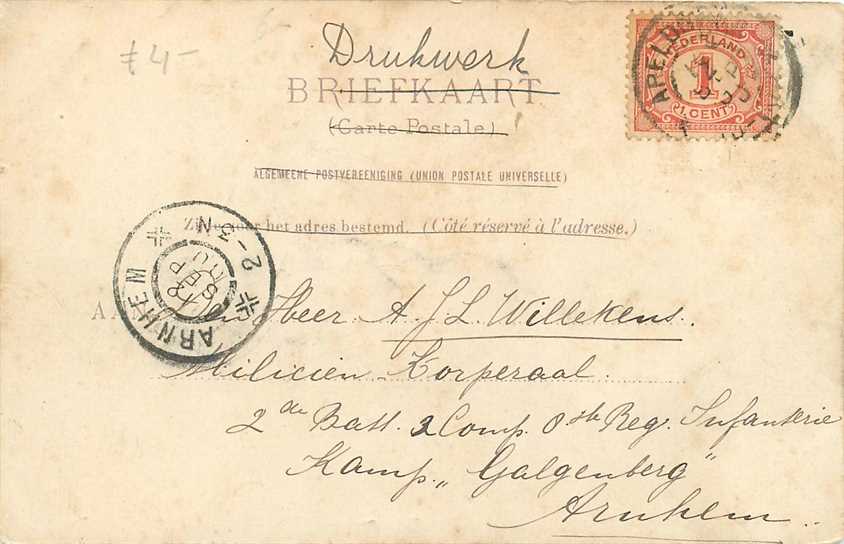 £4-
Drukwerk
BRIEFKAART
(Carte Postale)
ALGEMEENE POSTVEREENIGING (UNION POSTALE UNIVERSELLE)
Zijde voor het adres bestemd. (Côté réservé à l'adresse.)
NEDERLAND
1
1 CENT
APELD
ARNHEM
2-3 N
18
SEP
Heer A. J. L. Willekens.
Milicien Korperaal
2de Batt. 2 Comp. 8ste Reg. Infanterie
Kamp „Galgenberg"
Arnhem